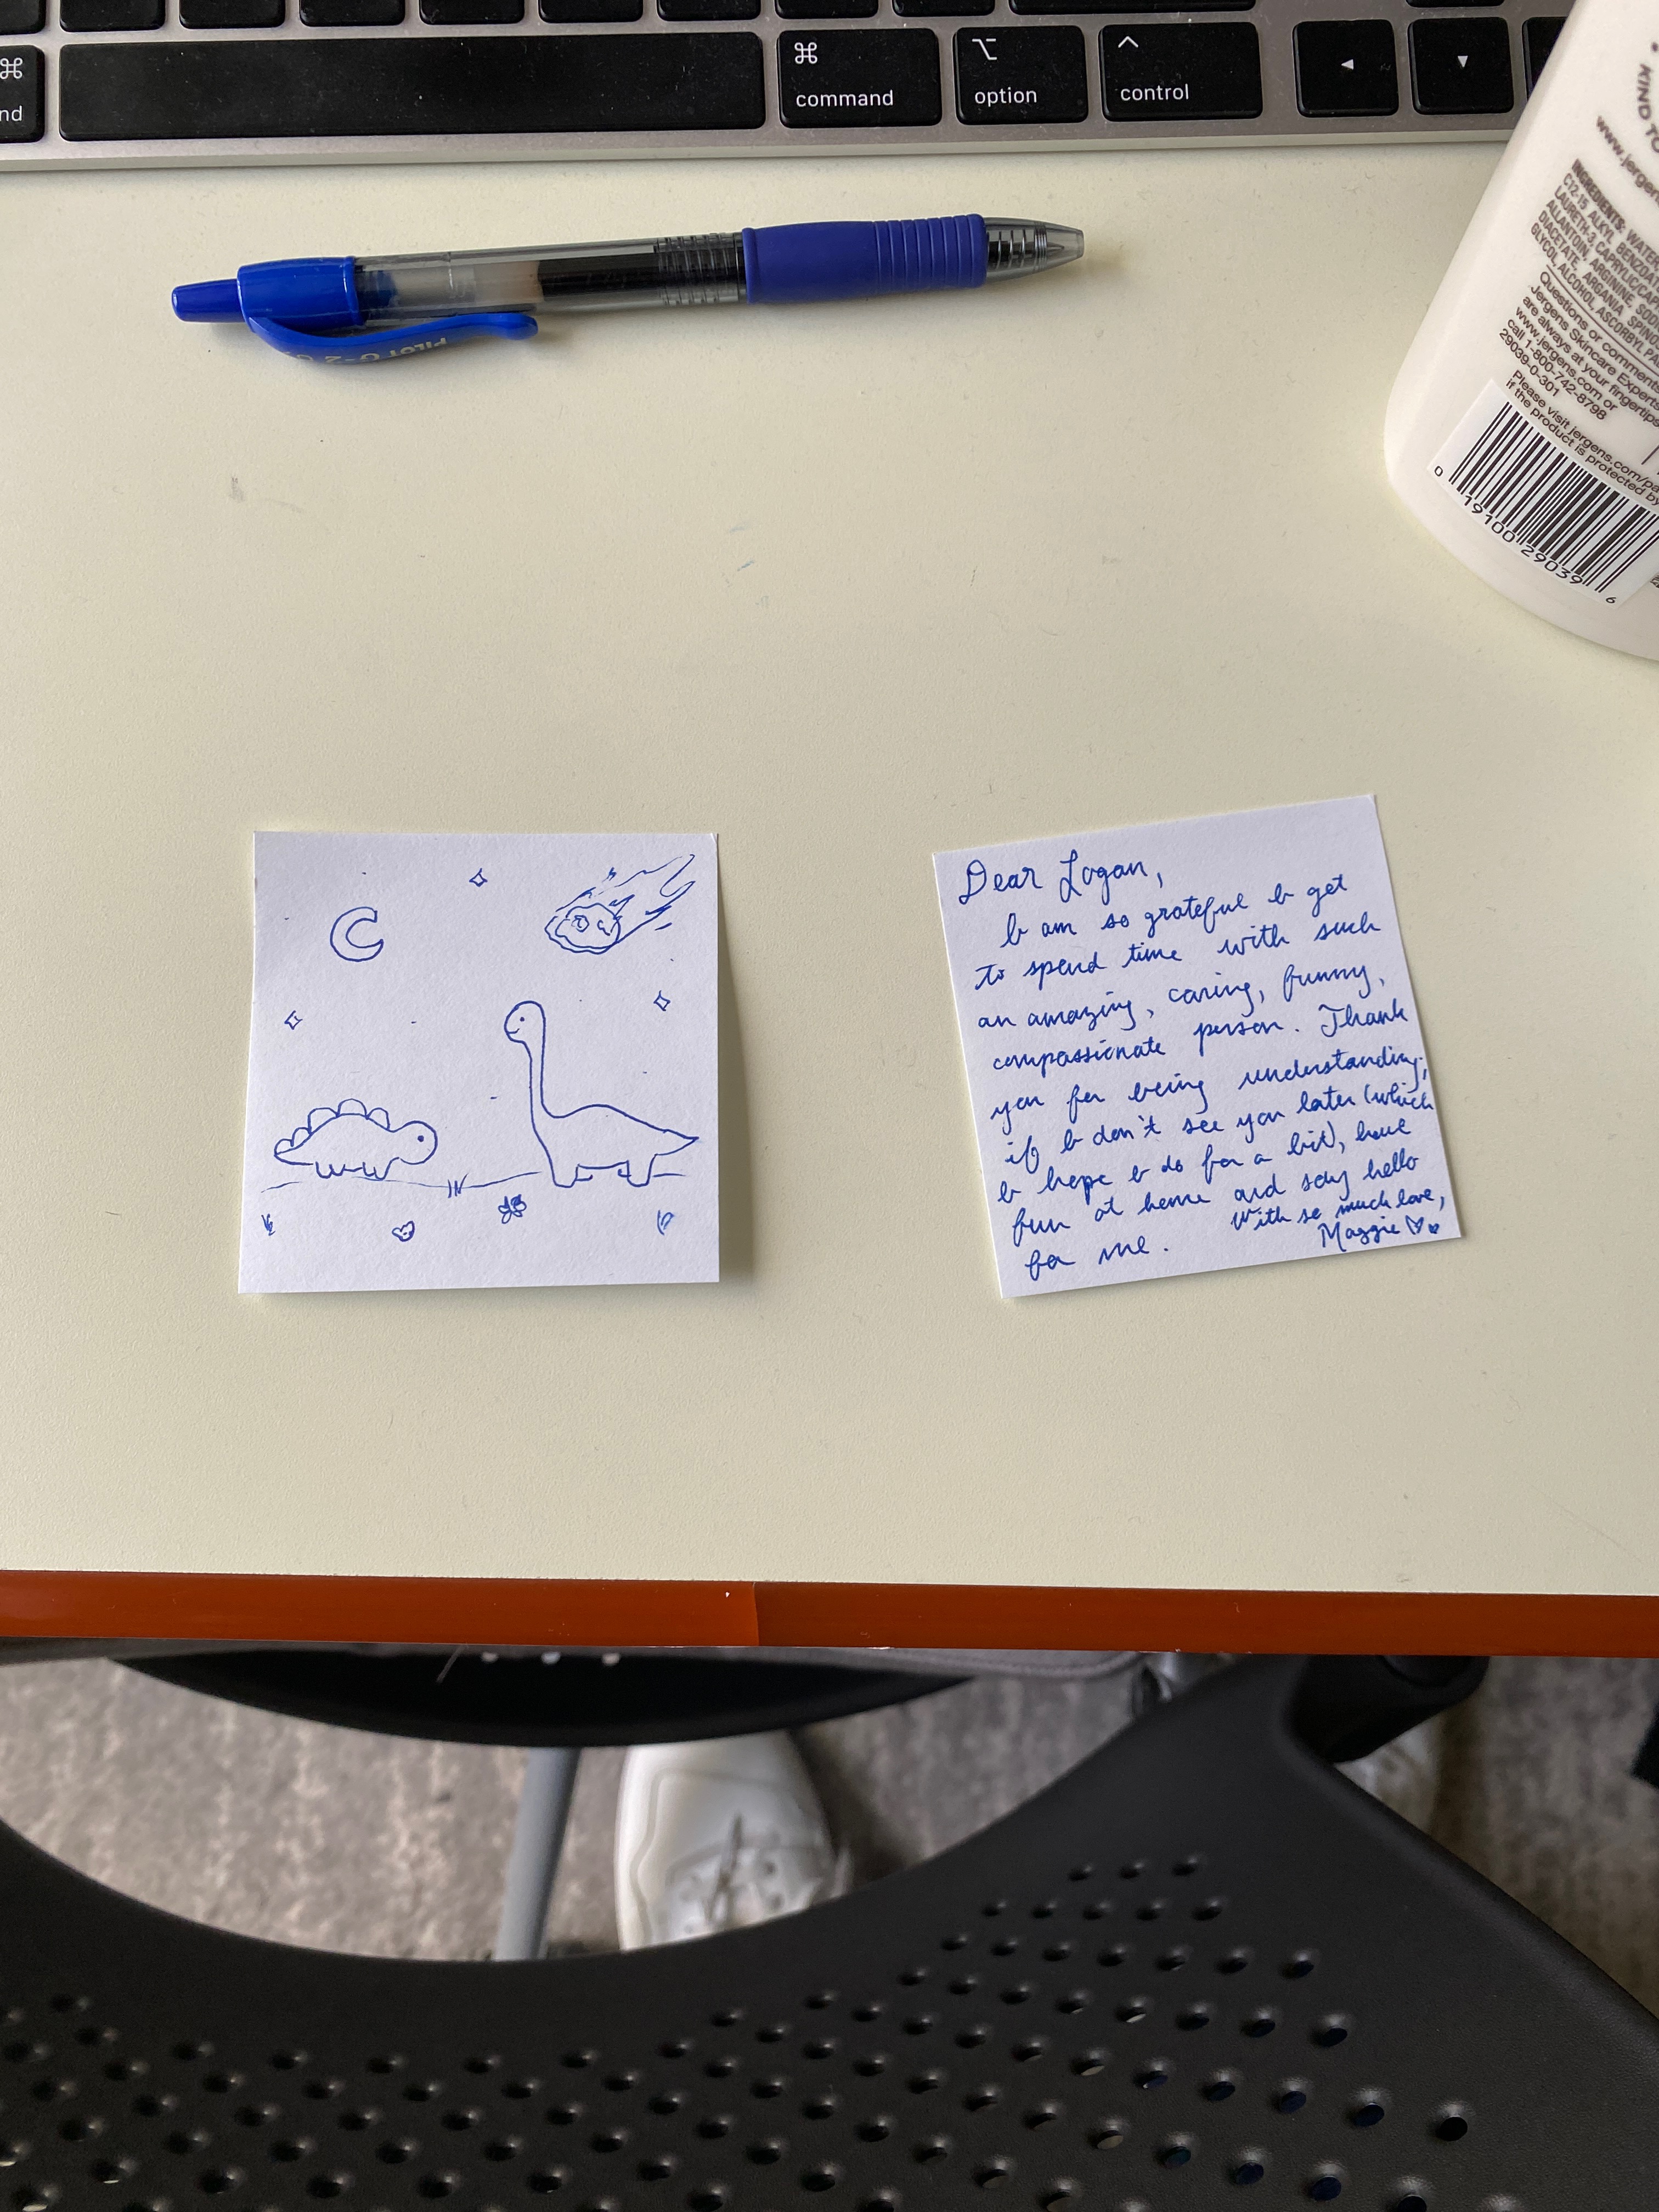 nd
command
option
control
PILOT G-2
KIND TO
www.jergen
INGREDIENTS: WATER
C12-15 ALKYL BENZOA
LAURETH-3, CAPRYLIC/CAP
ALLANTOIN, ARGININE, SOD
DIACETATE, ARGANIA SPINO
GLYCOL, ALCOHOL, ASCORBYL PA
Questions or comments
Jergens Skincare Experts
are always at your fingertips
www.jergens.com or
call 1-800-742-8798
29039-0-301
Please visit jergens.com/pa
if the product is protected by
0 19100 29039 6
Dear Logan,
I am so grateful I get
to spend time with such
an amazing, caring, funny,
compassionate person. Thank
you for being understanding;
if I don't see you later (which
I hope I do for a bit), have
fun at home and say hello
for me.
With so much love,
Maggie